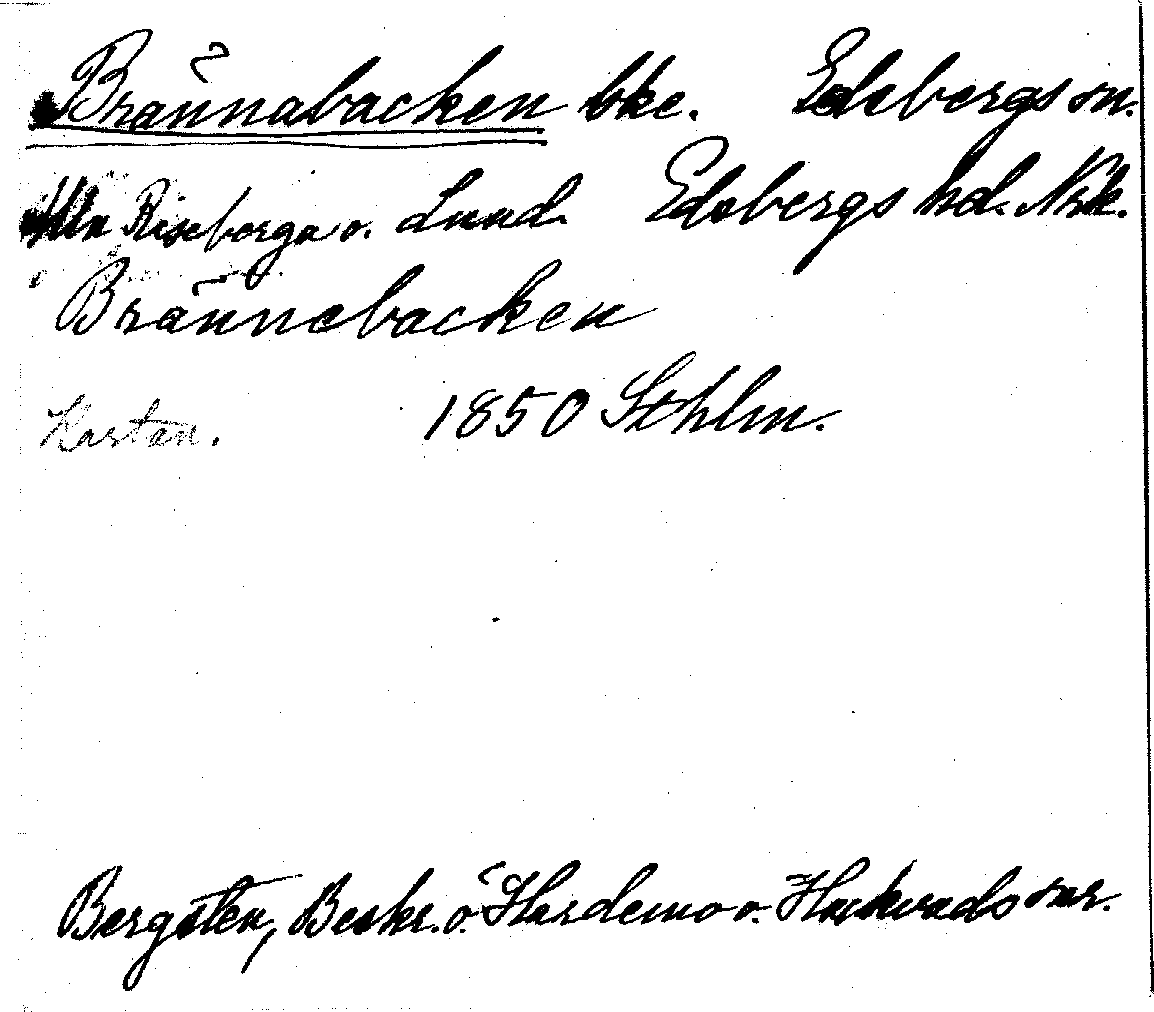 Brännabacken bke. Edsbergs sn.
Mln Riseberga o. Lund. Edsbergs hd. Nrk.
Brännebacken
Kartan. 1850 Sthlm.
Bergsten, Beskr. ö. Hardemo o. Hackvads snr.